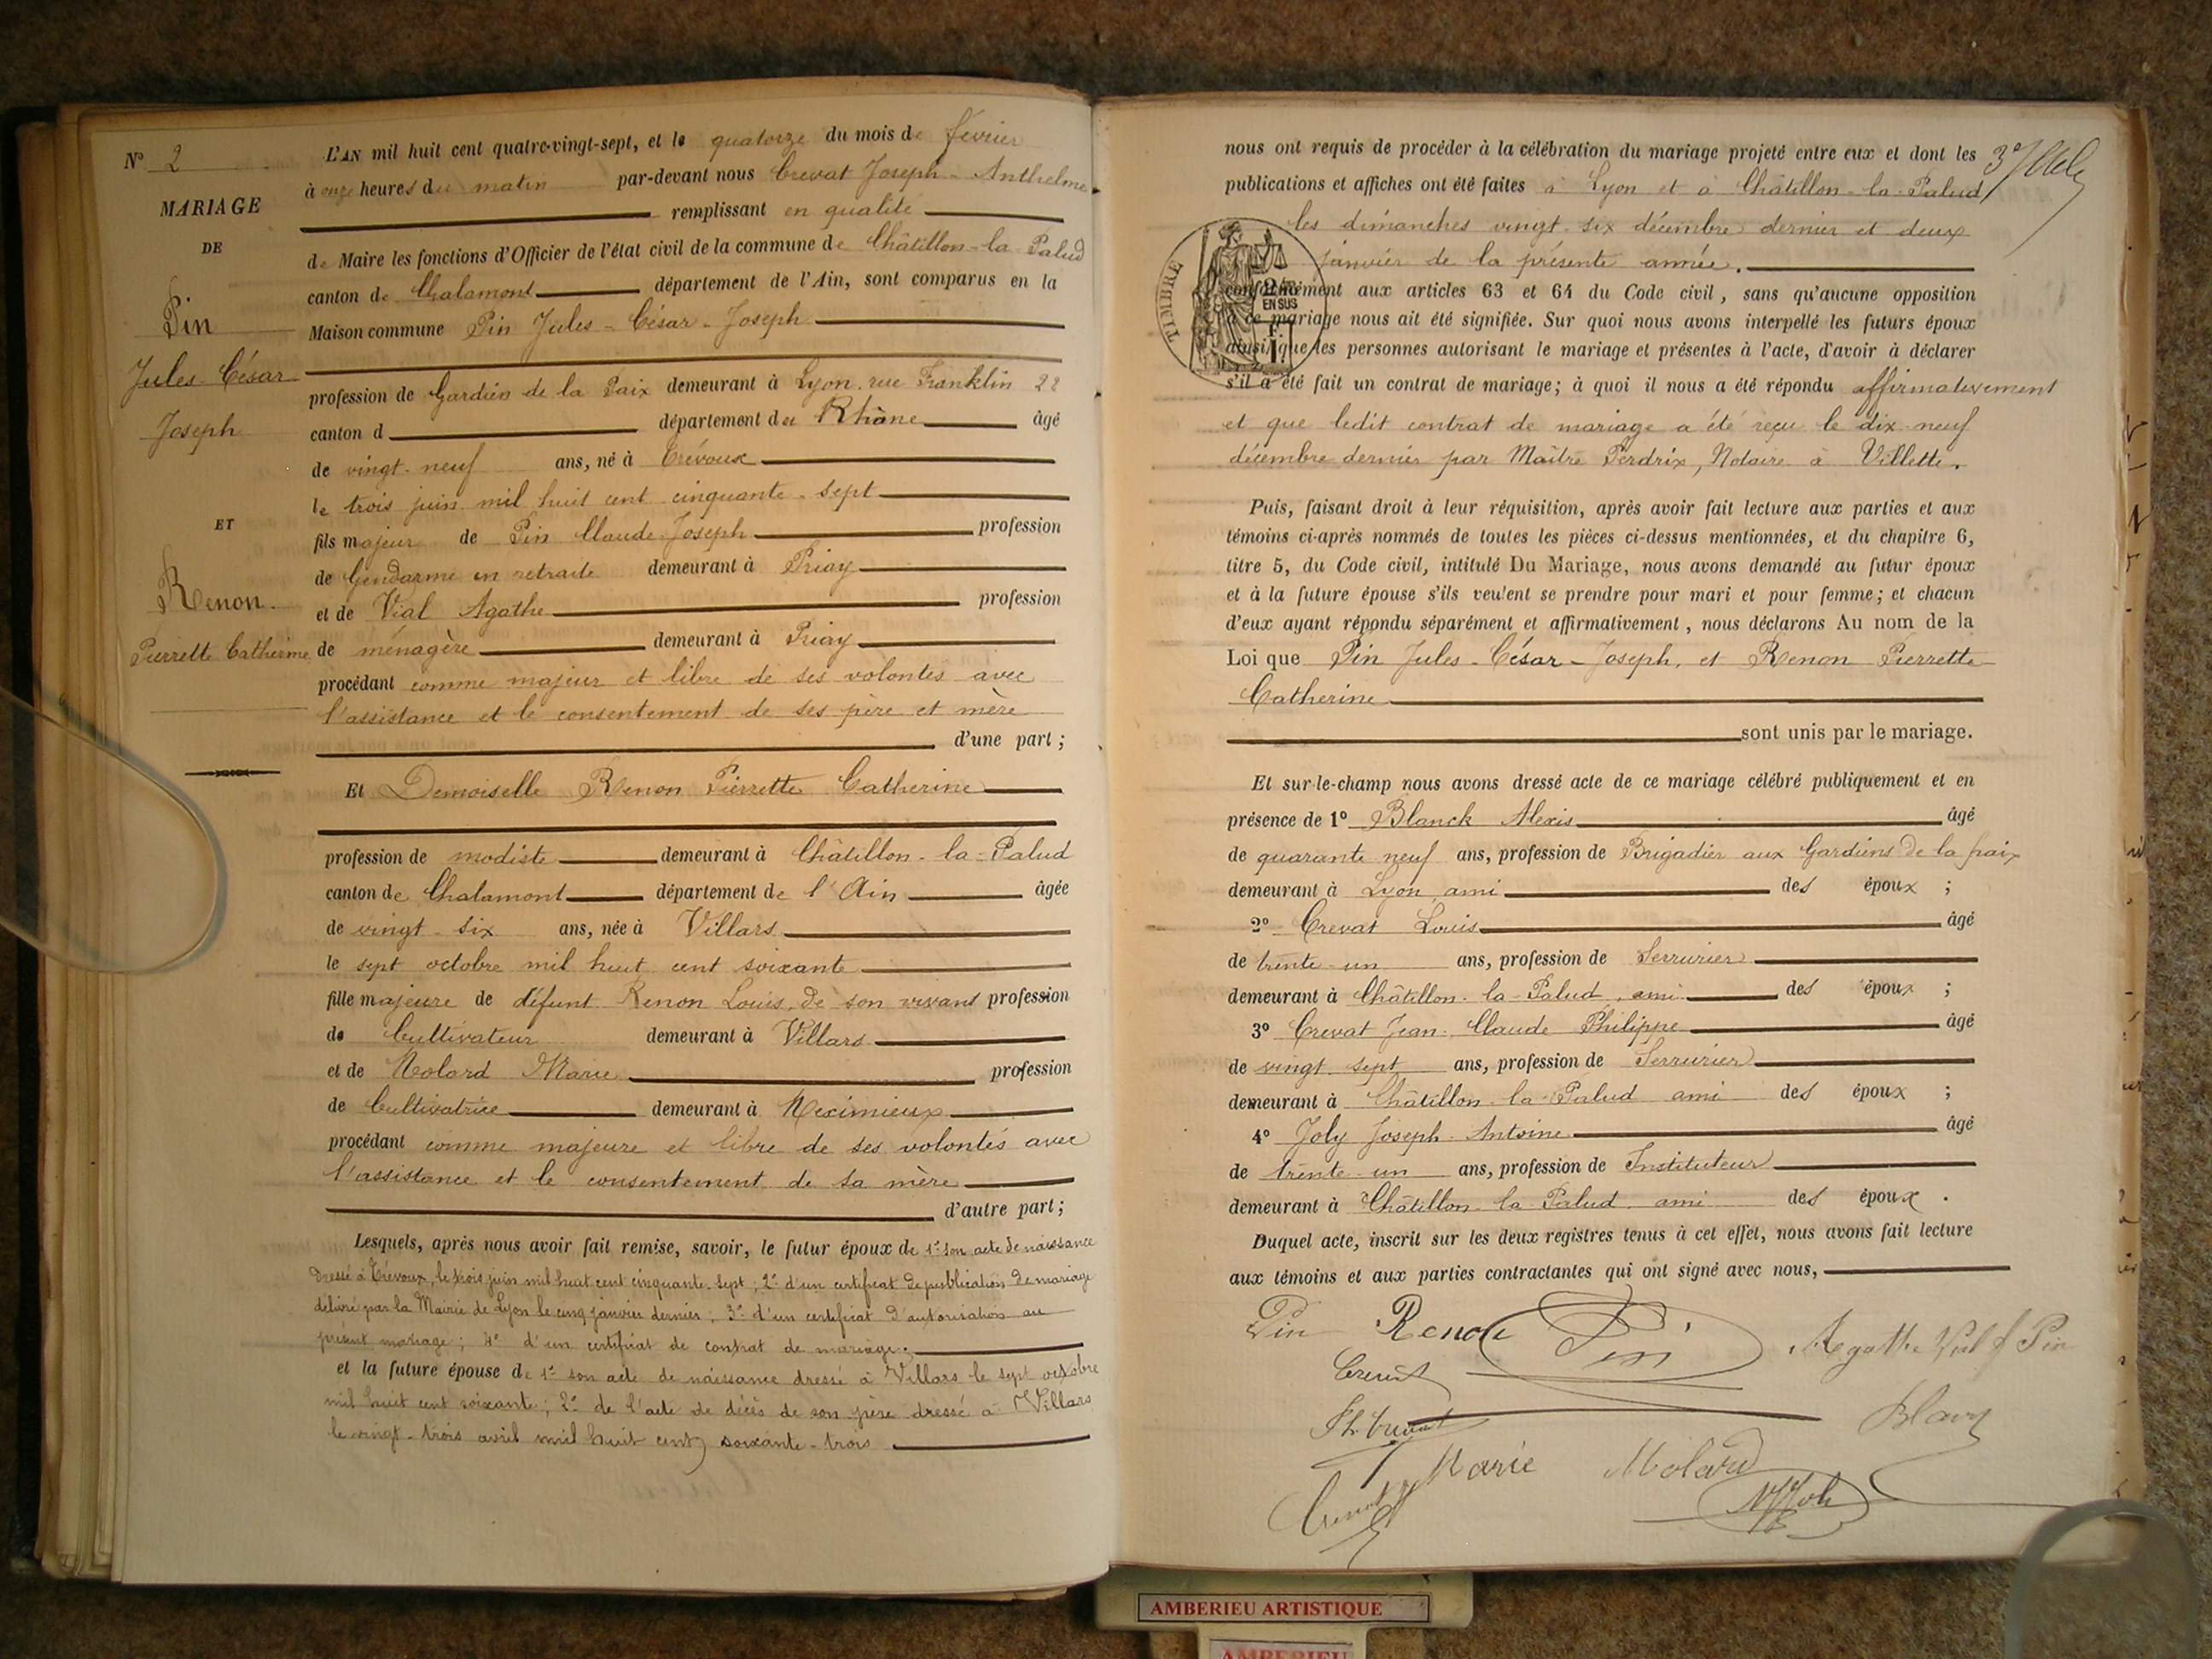 N° 2
MARIAGE
DE
Pin
Jules César
Joseph
ET
Renon.
Pierrette Catherine
L'AN mil huit cent quatre-vingt-sept, et le quatorze du mois de février
à onze heures du matin par-devant nous Crevat Joseph-Anthelme
remplissant en qualité
de Maire les fonctions d'Officier de l'état civil de la commune de Châtillon-la Palud
canton de Chalamont département de l'Ain, sont comparus en la
Maison commune Pin Jules-César-Joseph
profession de Gardien de la Paix demeurant à Lyon, rue Franklin 22
canton d département du Rhône âgé
de vingt-neuf ans, né à Trévoux
le trois juin mil huit cent cinquante-sept
fils majeur de Pin Claude-Joseph profession
de Gendarme en retraite demeurant à Priay
et de Vial Agathe profession
de ménagère demeurant à Priay
procédant comme majeur et libre de ses volontés avec
l'assistance et le consentement de ses père et mère
d'une part ;
Et Demoiselle Renon Pierrette Catherine
profession de modiste demeurant à Châtillon-la-Palud
canton de Chalamont département de l'Ain âgée
de vingt-six ans, née à Villars
le sept octobre mil huit cent soixante
fille majeure de défunt Renon Louis, de son vivant profession
de Cultivateur demeurant à Villars
et de Molard Marie profession
de Cultivatrice demeurant à Meximieux
procédant comme majeure et libre de ses volontés avec
l'assistance et le consentement de sa mère
d'autre part ;
Lesquels, après nous avoir fait remise, savoir, le futur époux de 1° son acte de naissance
dressé à Trévoux, le trois juin mil huit cent cinquante-sept ; 2° d'un certificat de publication de mariage
délivré par la Mairie de Lyon le cinq janvier dernier ; 3° d'un certificat d'autorisation au
présent mariage ; 4° d'un certificat de contrat de mariage ;
et la future épouse de 1° son acte de naissance dressé à Villars le sept octobre
mil huit cent soixante ; 2° de l'acte de décès de son père dressé à Villars
le vingt-trois avril mil huit cent soixante-trois
nous ont requis de procéder à la célébration du mariage projeté entre eux et dont les
publications et affiches ont été faites à Lyon et à Châtillon-la-Palud
les dimanches vingt-six décembre dernier et deux
janvier de la présente année.
TIMBRE
EN SUS
conformément aux articles 63 et 64 du Code civil, sans qu'aucune opposition
à ce mariage nous ait été signifiée. Sur quoi nous avons interpellé les futurs époux
ainsi que les personnes autorisant le mariage et présentes à l'acte, d'avoir à déclarer
s'il a été fait un contrat de mariage; à quoi il nous a été répondu affirmativement
et que ledit contrat de mariage a été reçu le dix-neuf
décembre dernier par Maître Perdrix, Notaire à Villette.
Puis, faisant droit à leur réquisition, après avoir fait lecture aux parties et aux
témoins ci-après nommés de toutes les pièces ci-dessus mentionnées, et du chapitre 6,
titre 5, du Code civil, intitulé Du Mariage, nous avons demandé au futur époux
et à la future épouse s'ils veulent se prendre pour mari et pour femme; et chacun
d'eux ayant répondu séparément et affirmativement, nous déclarons Au nom de la
Loi que Pin Jules-César-Joseph, et Renon Pierrette
Catherine
sont unis par le mariage.
Et sur-le-champ nous avons dressé acte de ce mariage célébré publiquement et en
présence de 1° Blanck Alexis âgé
de quarante neuf ans, profession de Brigadier aux Gardiens de la paix
demeurant à Lyon, ami des époux ;
2° Crevat Louis âgé
de trente-un ans, profession de Serrurier
demeurant à Châtillon-la-Palud, ami des époux ;
3° Crevat Jean-Claude Philippe âgé
de vingt sept ans, profession de Serrurier
demeurant à Châtillon-la-Palud ami des époux ;
4° Joly Joseph-Antoine âgé
de trente-un ans, profession de Instituteur
demeurant à Châtillon-la-Palud, ami des époux.
Duquel acte, inscrit sur les deux registres tenus à cet effet, nous avons fait lecture
aux témoins et aux parties contractantes qui ont signé avec nous,
Pin Renon Pin Agathe Vial f Pin
Crevat
Marie Molard
AMBERIEU ARTISTIQUE
AMBERIEU